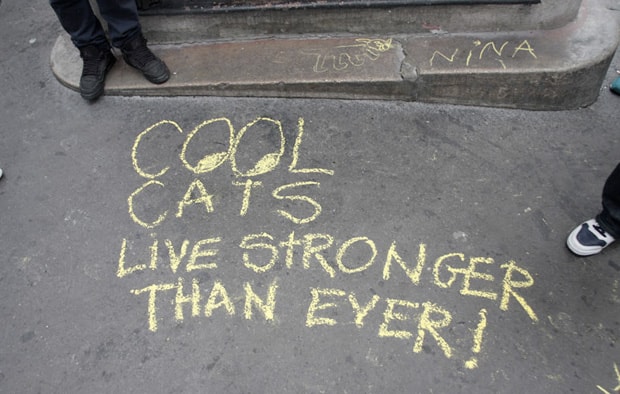 NINA
COOL
CATS
LIVE STRONGER
THAN EVER!